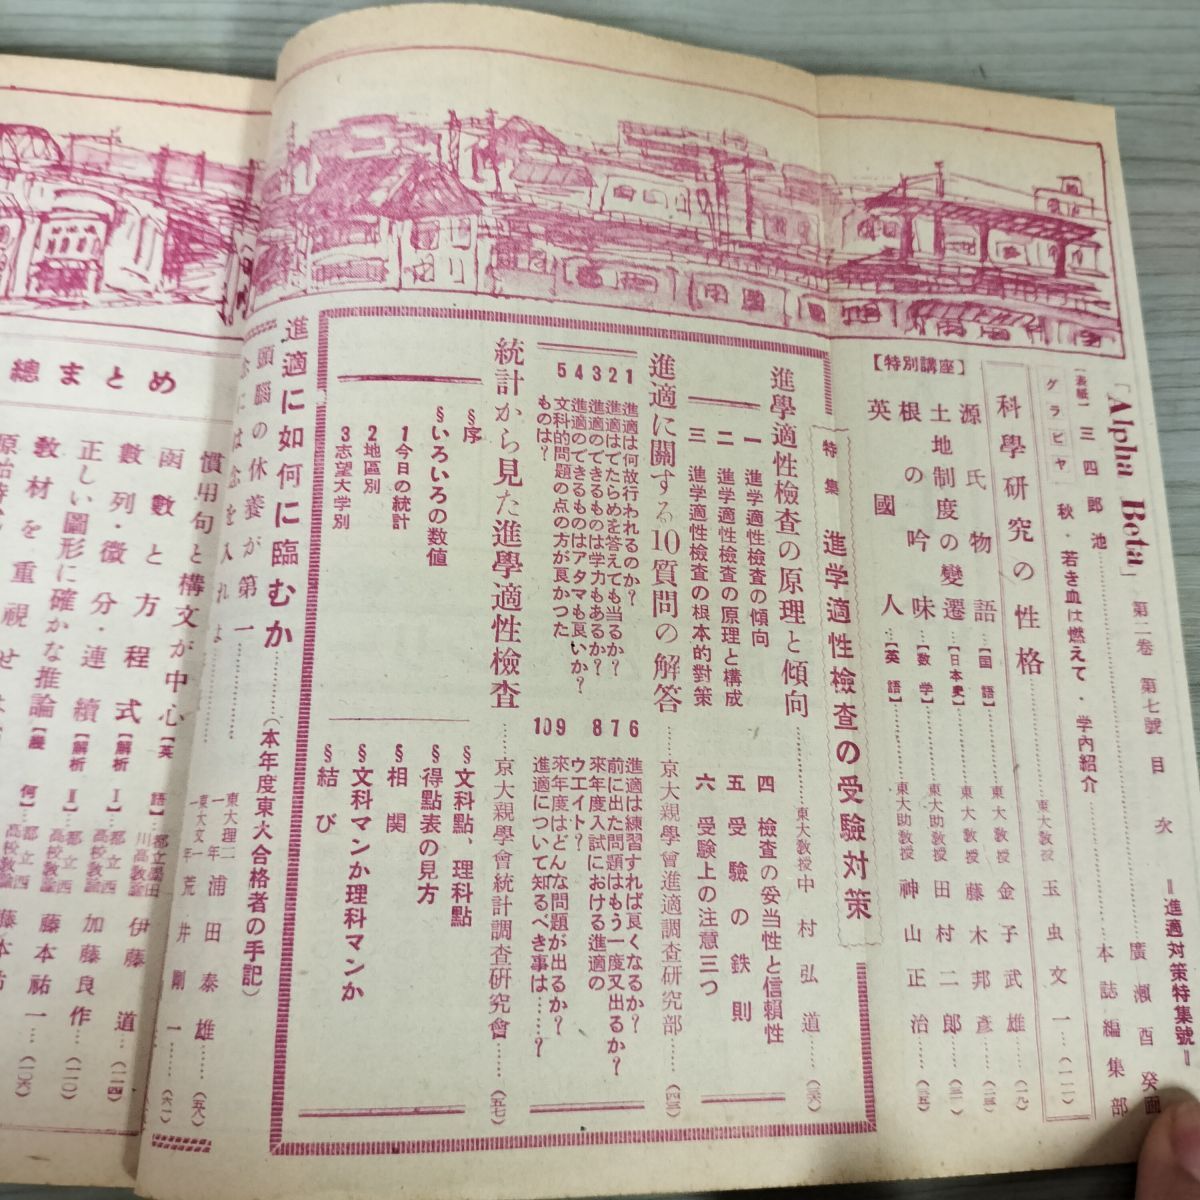 「Alpha Beta」 第二卷 第七號 目次 =進適対策特集號=
〔表紙〕三四郎池 廣瀬酉癸画
グラビヤ 秋・若き血は燃えて・学内紹介 本誌編集部
科學研究の性格 東大教授 玉虫文一 (一一)
【特別講座】
源氏物語【国語】 東大教授 金子武雄 (一九)
土地制度の變遷【日本史】 東大教授 藤木邦彦
根の吟味【数学】 東大助教授 田村二郎
英國人【英語】 東大助教授 神山正治
特集 進学適性檢査の受驗対策
進學適性檢査の原理と傾向 東大教授 中村弘道
一 進学適性檢査の傾向
二 進学適性檢査の原理と構成
三 進学適性檢査の根本的對策
四 檢査の妥当性と信頼性
五 受驗の鉄則
六 受験上の注意三つ
進適に關する10質問の解答 京大親學會進適調査研究部
1 進適は何故行われるのか?
2 進適はでたらめを答えても当るか?
3 進適のできるものは学力もあるか?
4 進適のできるものはアタマも良いか?
5 文科的問題の点の方が良かつた
ものは?
6 進適は練習すれば良くなるか?
7 前に出た問題はもう一度又出るか?
8 來年度入試における進適の
ウエイト?
9 來年度はどんな問題が出るか?
10 進適について知るべき事は……?
統計から見た進學適性檢査 京大親學會統計調査研究會 (五七)
§序
§いろいろの数値
1今日の統計
2地區別
3志望大学別
§文科點、理科點
§得點表の見方
§相関
§文科マンか理科マンか
§結び
進適に如何に臨むか (本年度東大合格者の手記)
頭腦の休養が第一 東大理二一年 浦田泰雄
念には念を入れよ 東大文一一年 荒井剛一
總まとめ
慣用句と構文が中心【英語】 都立墨田川高教諭 伊藤道
函數と方程式【解析Ⅰ】 都立西高校教諭 加藤良作
數列・微分・連續【解析Ⅱ】 都立西高校教諭 藤本祐一
正しい圖形に確かな推論【幾何】 都立西高校教諭 藤本祐一
教材を重視せよ